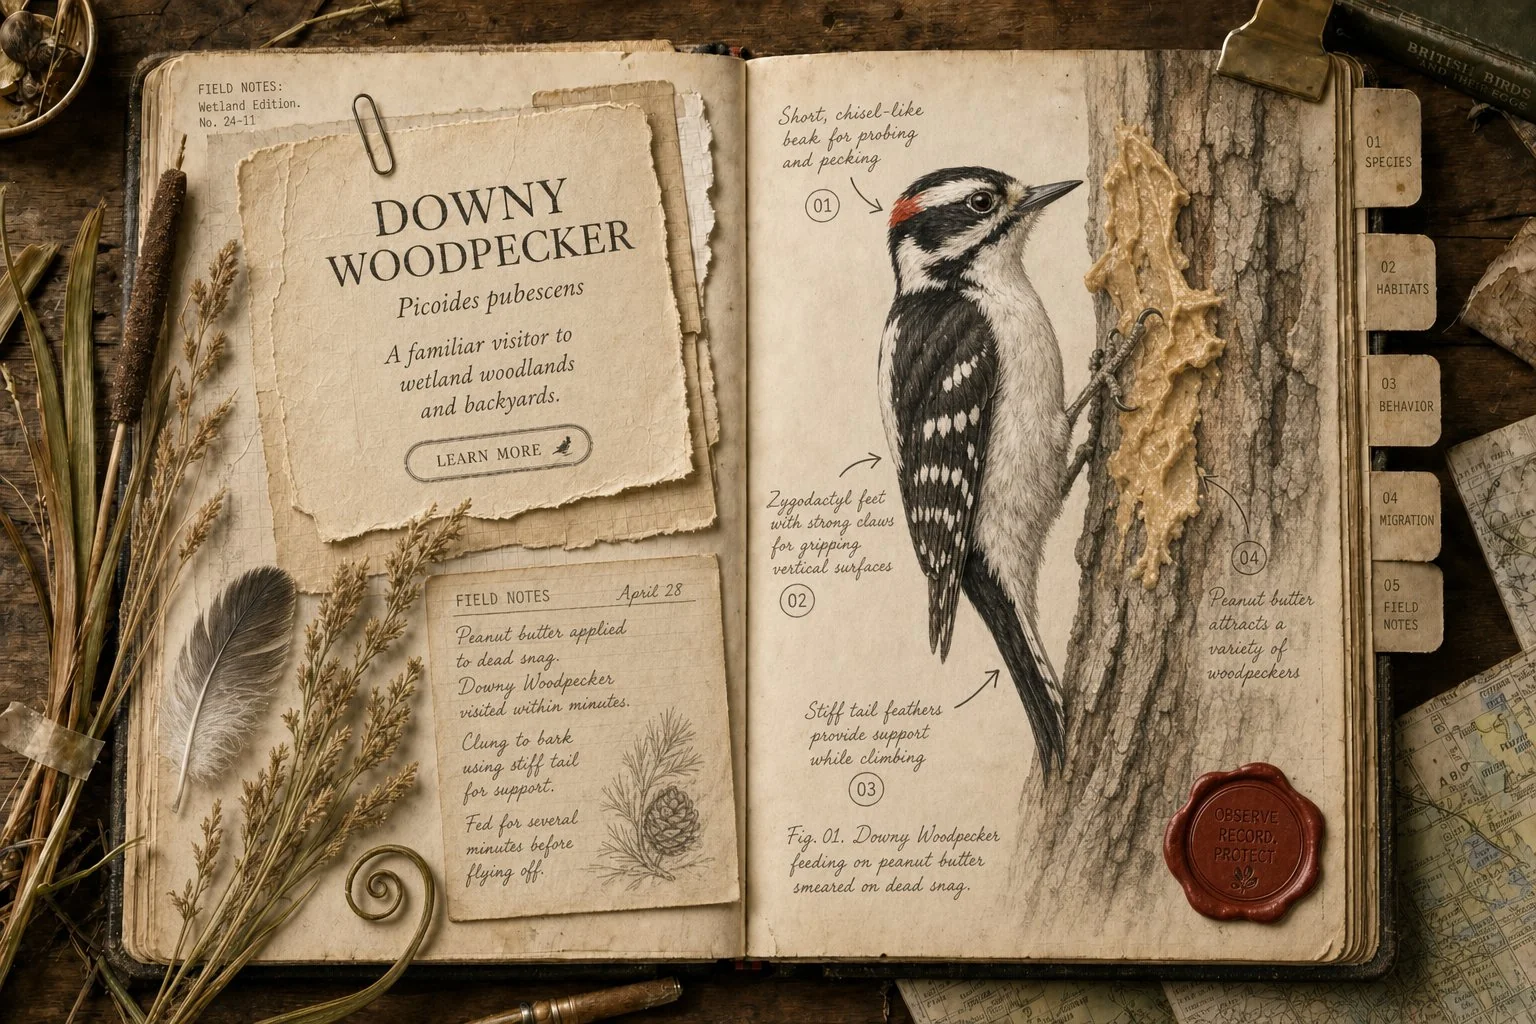 FIELD NOTES:
Wetland Edition.
No. 24-11
DOWNY
WOODPECKER
Picoides pubescens
A familiar visitor to
wetland woodlands
and backyards.
LEARN MORE
FIELD NOTES April 28
Peanut butter applied
to dead snag.
Downy Woodpecker
visited within minutes.
Clung to bark
using stiff tail
for support.
Fed for several
minutes before
flying off.
Short, chisel-like
beak for probing
and pecking
01
Zygodactyl feet
with strong claws
for gripping
vertical surfaces
02
Stiff tail feathers
provide support
while climbing
03
04
Peanut butter
attracts a
variety of
woodpeckers
Fig. 01. Downy Woodpecker
feeding on peanut butter
smeared on dead snag.
OBSERVE
RECORD.
PROTECT
01
SPECIES
02
HABITATS
03
BEHAVIOR
04
MIGRATION
05
FIELD
NOTES
BRITISH BIRDS
AND THEIR EGGS